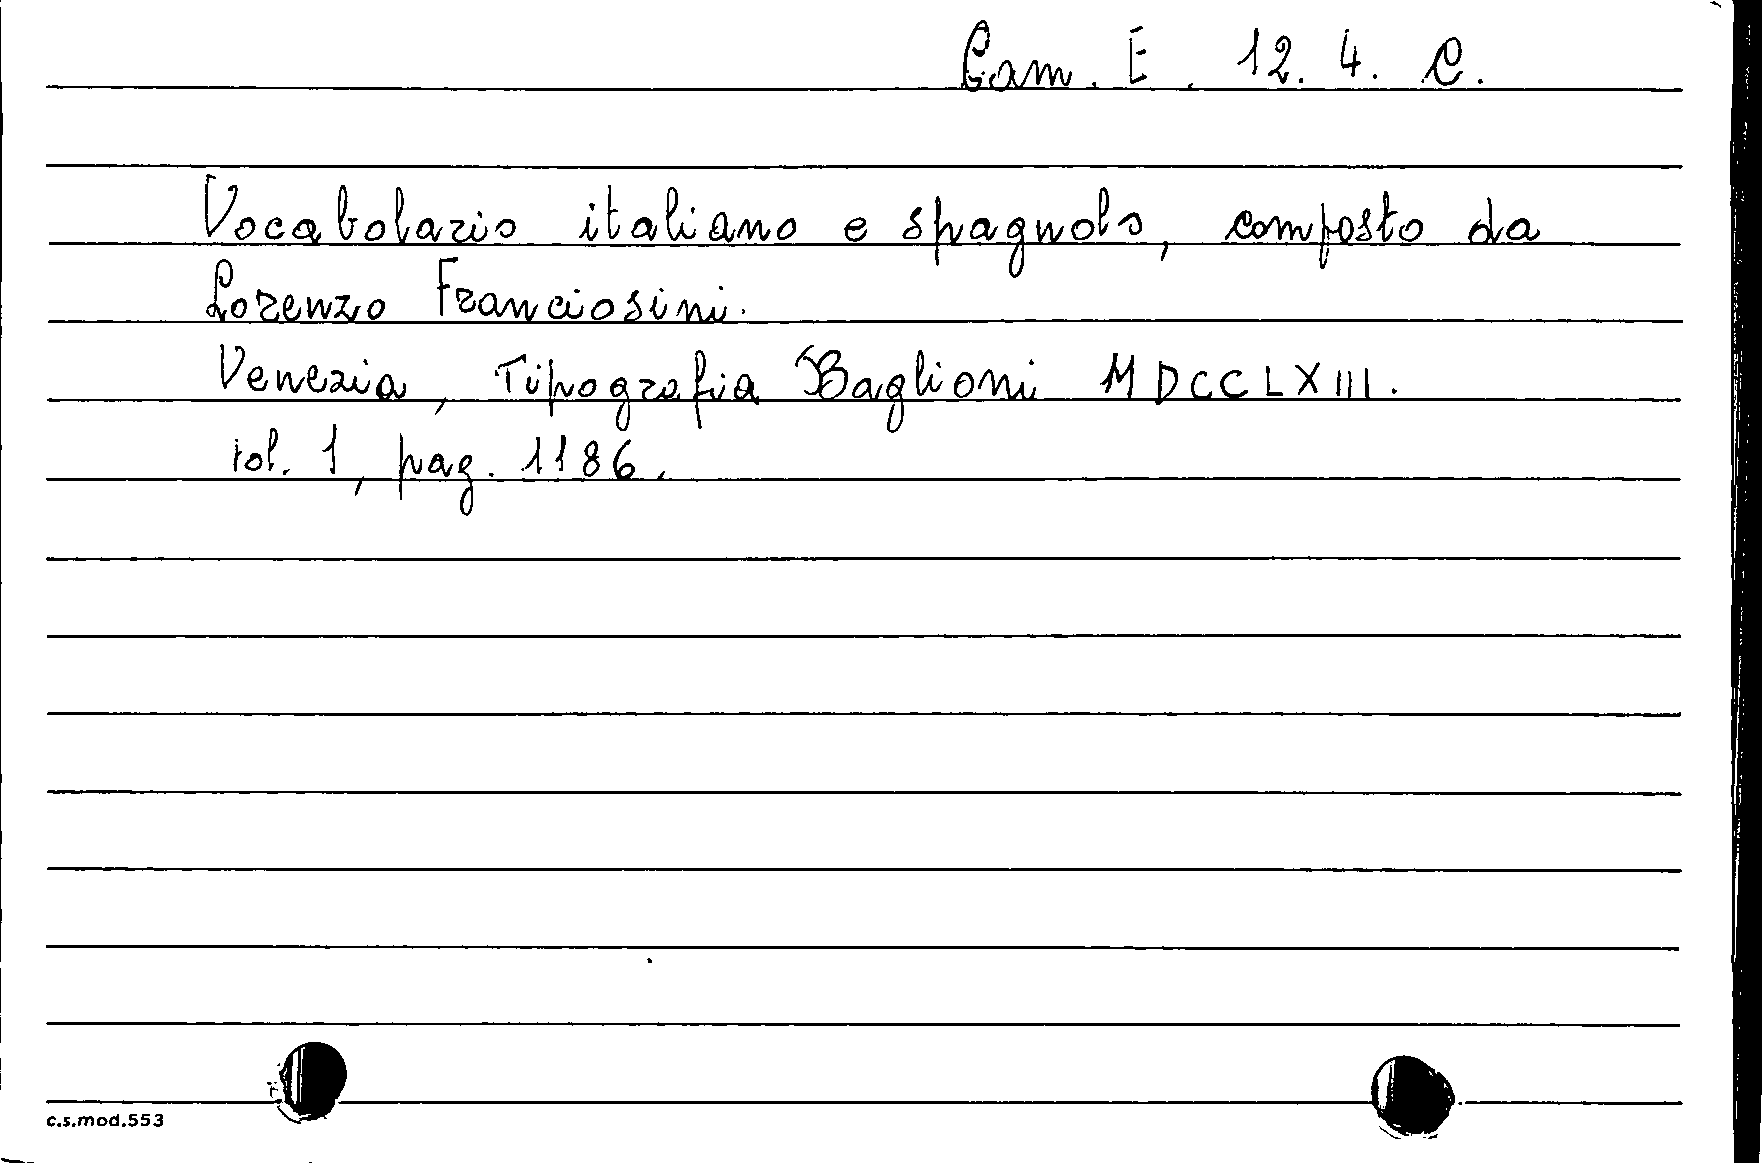 Cam. E. 12. 4. C.
Vocabolario italiano e spagnolo, composto da
Lorenzo Franciosini.
Venezia, Tipografia Baglioni MDCCLXIII.
vol. 1, pag. 1186.
c.s.mod.553